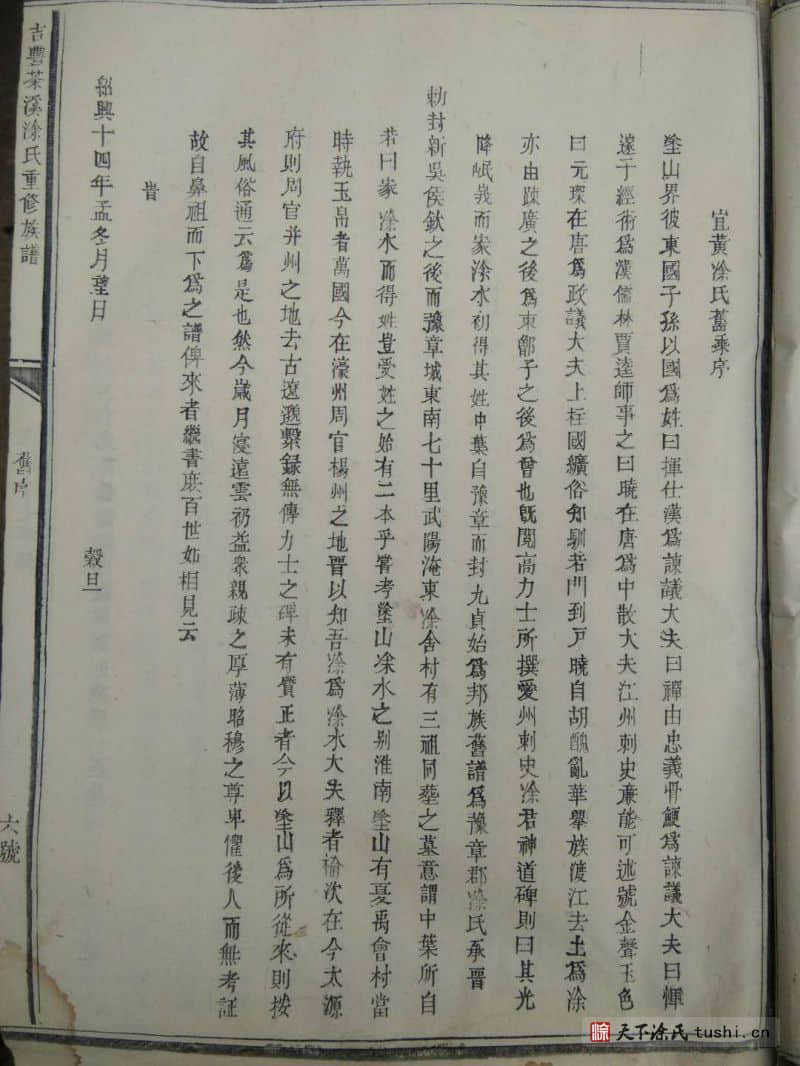 宜黃凃氏舊乘序
塗山界彼東國子孫以國為姓曰揮仕漢為諫議大夫曰禪由忠義骨鯁為諫議大夫曰惲
遠于經術為漢儒林賈逵師事之曰曉在唐為中散大夫江州刺史廉能可述號金聲玉色
曰元琛在唐為政議大夫上柱國纊俗知馴若門到戶曉自胡醜亂華舉族渡江去土為凃
亦由踈廣之後為束鄫子之後為曾也既閱高力士所撰愛州刺史凃君神道碑則曰其光
降岷峩而家涂水初得其姓中葉自豫章而封九貞始為邦族舊譜為豫章郡凃氏承晉
勅封新吳侯欽之後而豫章城東南七十里武陽淹東凃舍村有三祖同塟之墓意謂中葉所自
若曰家凃水而得姓豈受姓之始有二本乎嘗考塗山凃水之别淮南塗山有憂禹會村當
時執玉帛者萬國今在濠州周官楊州之地晋以知吾凃為凃水大夫釋者榆次在今太源
府則周官并州之地去古遼邈繫録無傳力士之碑未有質正者今以塗山為所從來則按
其風俗通云為是也然今歲月寖遠雲礽益衆親疎之厚薄昭穆之尊卑懼後人而無考証
故自鼻祖而下為之譜俾來者繼書庶百世如相見云
旹
紹興十四年孟冬月望日
穀旦
吉豐茶溪涂氏重修族譜
舊序
六號
涂 天下涂氏 tushi.cn